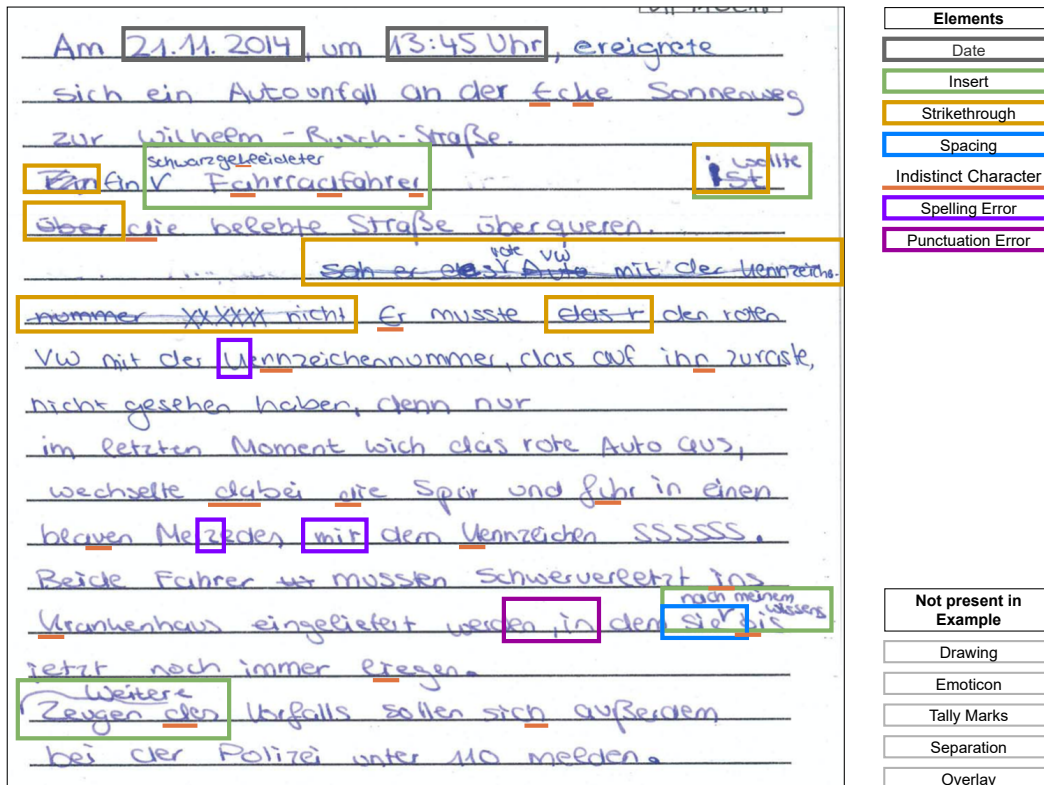 Am 21.11.2014, um 13:45 Uhr, ereignete
sich ein Autounfall an der Ecke Sonnenweg
zur Wilhelm-Busch-Straße.
schwarzgekleideter wollte
Ein V Fahrradfahrer ist
über die belebte Straße überqueren.
rote VW
sah er das V Auto mit der Kennzeichn.
nummer XXXXXX nicht Er musste das den roten
VW mit der Uennzeichennummer, das auf ihn zuraste,
nicht gesehen haben, denn nur
im letzten Moment wich das rote Auto aus,
wechselte dabei die Spur und fuhr in einen
blauen Mezedes mir dem Kennzeichen SSSSSS.
Beide Fahrer mussten Schwerverletzt ins
nach meinem wissens
Krankenhaus eingeliefert werden, in dem sie V bis
jetzt noch immer liegen.
Weitere
Zeugen des Vorfalls sollen sich außerdem
bei der Polizei unter 110 melden.
Elements
Date
Insert
Strikethrough
Spacing
Indistinct Character
Spelling Error
Punctuation Error
Not present in
Example
Drawing
Emoticon
Tally Marks
Separation
Overlay